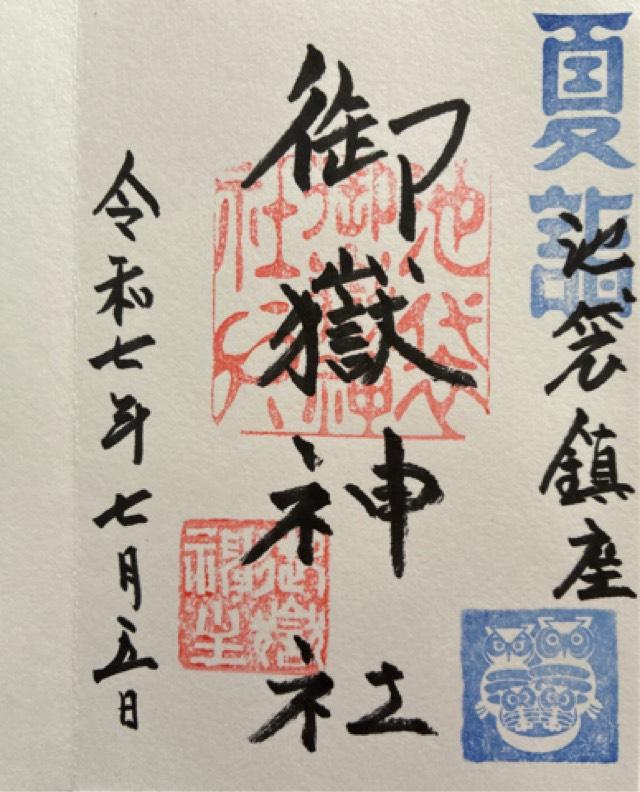 夏詣
池袋鎮座
御嶽神社
池袋御嶽神社
令和七年七月五日